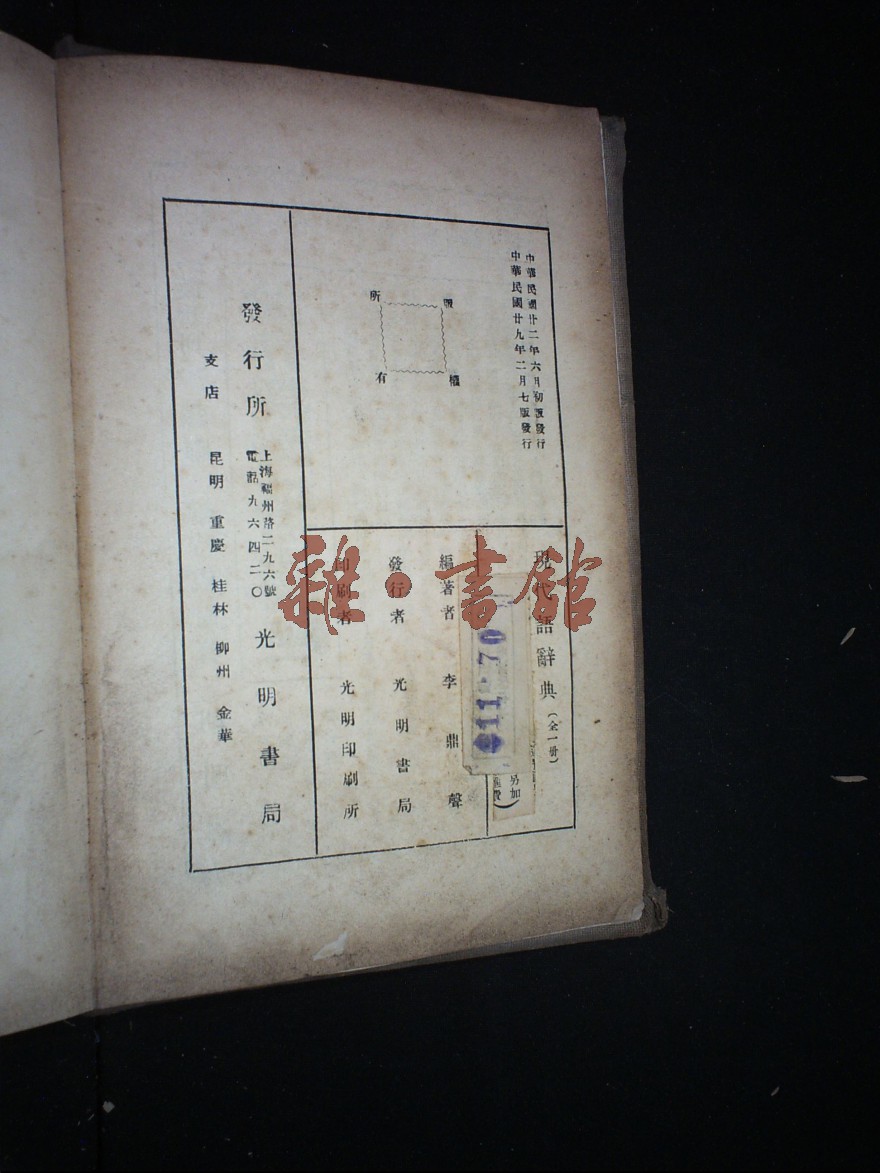 中華民國廿二年六月初版發行
中華民國廿九年二月七版發行
版權所有
現代語辭典(全一册)
另加
費)
11·70
編著者 李鼎聲
發行者 光明書局
印刷者 光明印刷所
發行所 上海福州路二九六號 光明書局
電話九六四二〇
支店 昆明 重慶 桂林 柳州 金華
雜·書館